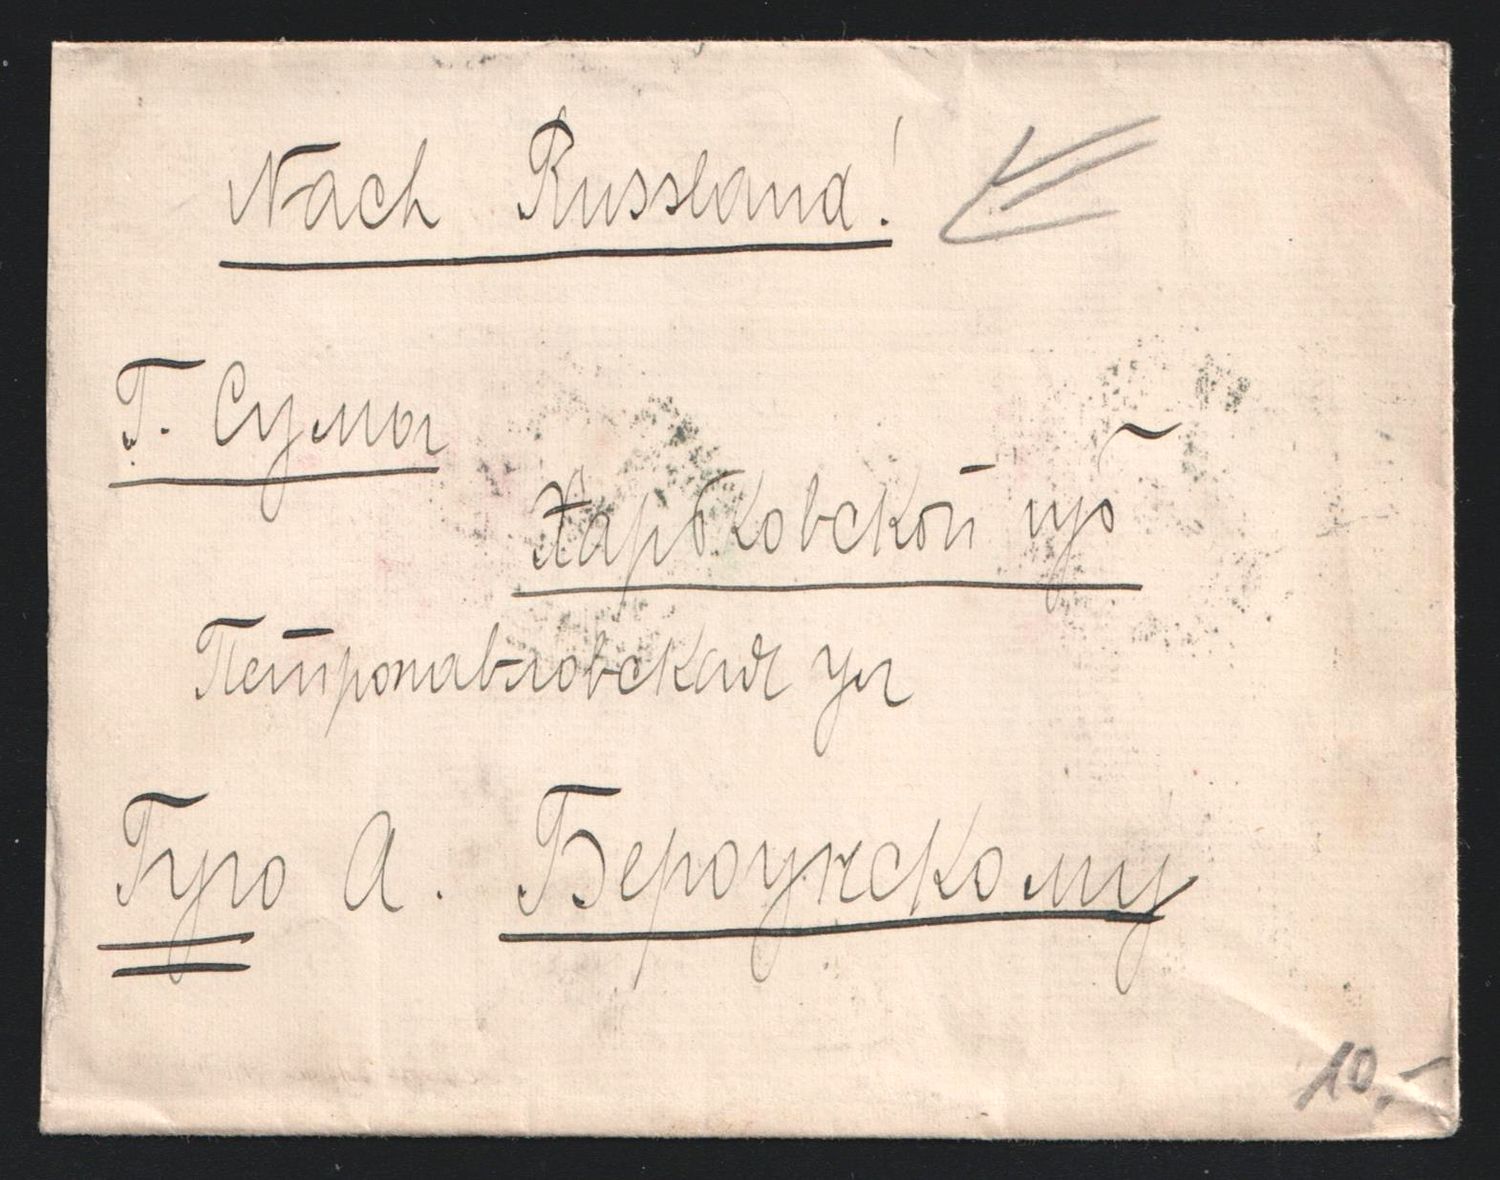 Nach Russland!
Г. Сумы
Харьковской губ
Петропавловская ул
Гуго А.
10,-